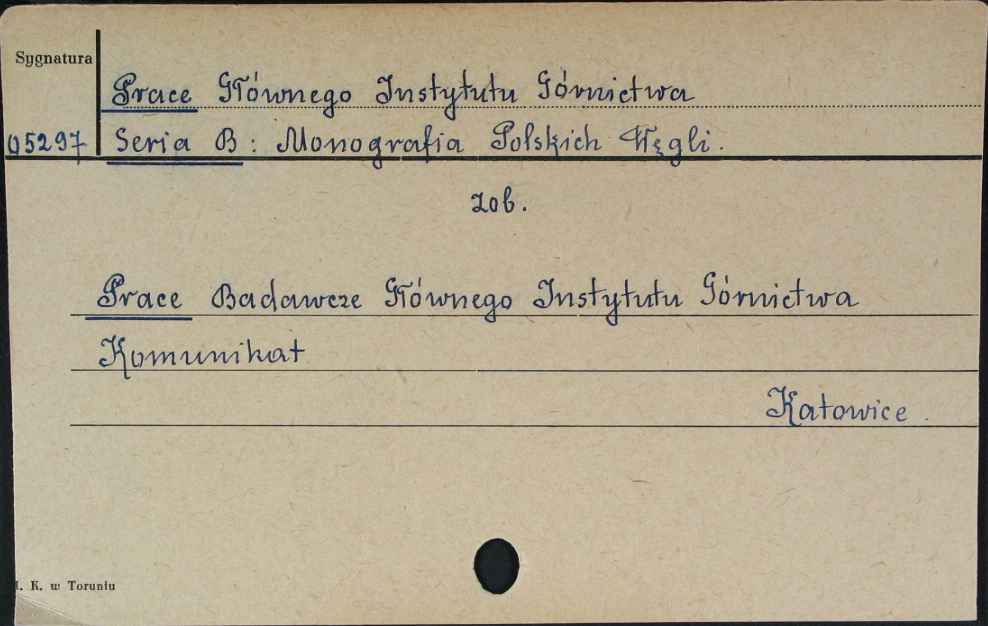 Sygnatura
Prace Głównego Instytutu Górnictwa
05297 Seria B: Monografia Polskich Węgli.
zob.
Prace Badawcze Głównego Instytutu Górnictwa
Komunikat
Katowice.
K. w Toruniu